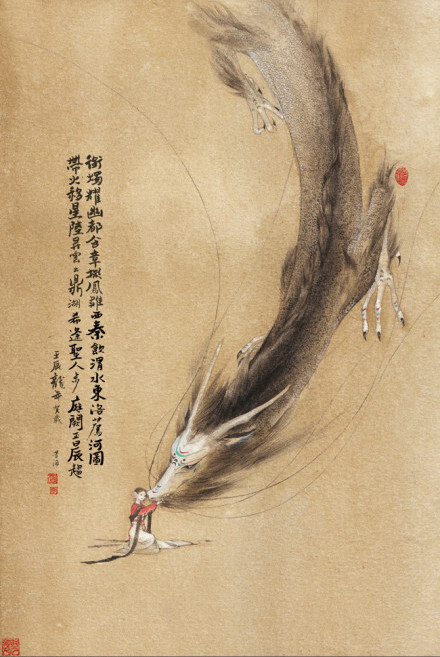 銜燭耀幽都含章擬鳳雛西秦飲渭水東洛薦河圖
帶火移星陸昇雲出鼎湖希逢聖人步庭闕正辰趨
壬辰龍年賀歲